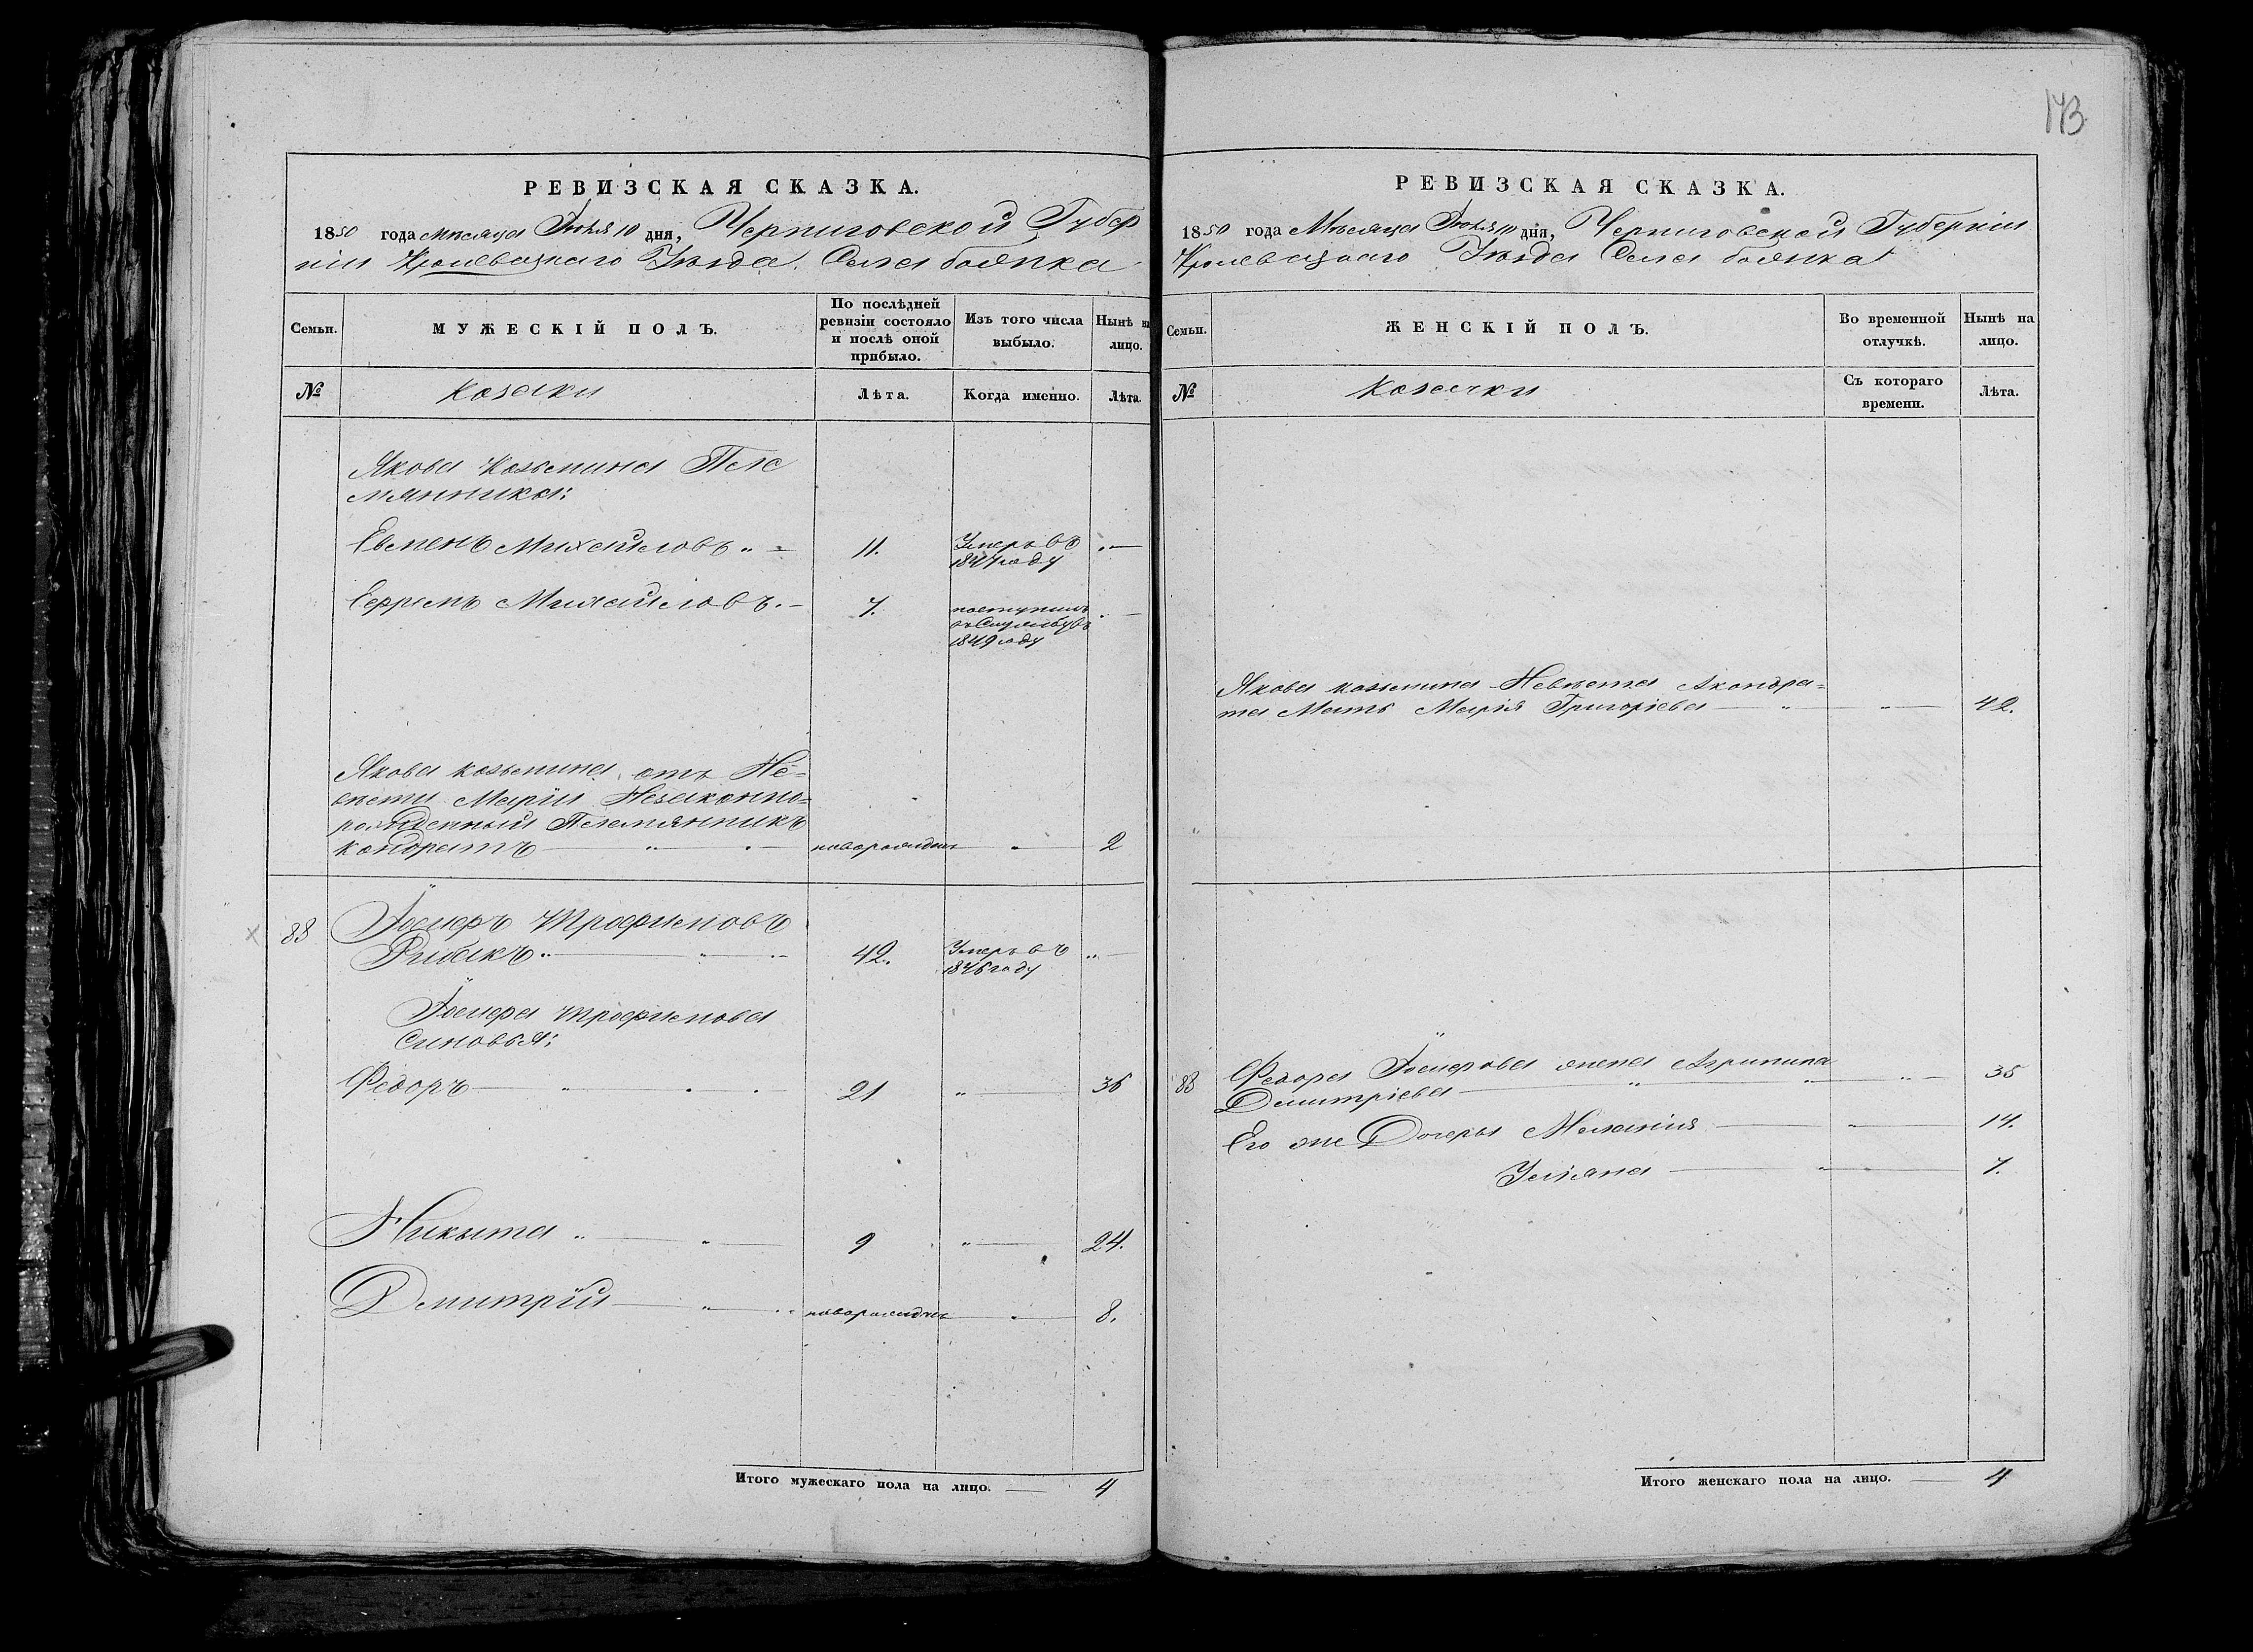 173
РЕВИЗСКАЯ СКАЗКА.
1850 года месяца Іюля 10 дня, Черниговской Губер
ніи Кролевацкаго Уѣзда. Села
Семьи.
МУЖЕСКІЙ ПОЛЪ.
По послѣдней ревизіи состояло и послѣ оной прибыло.
Изъ того числа выбыло.
Нынѣ на лицо.
№
Козаки
Лѣта.
Когда именно.
Лѣта.
Якова Козьмина Пле
мянники:
Евменъ Михайловъ 11. Умеръ въ
1847 году
Сергѣй Михайловъ 7. поступилъ
въ Службу въ
1849 году
Якова Козьмина отъ Не=
вѣсти Маріи Незаконно=
рожденный Племянникъ
Кондратъ новорожден 2
88 Іосифъ Трофимовъ
Рибакъ 42. Умеръ въ
1846 году
Іосифа Трофимова
Синовья:
Федоръ 21 36
Никыта 9 24.
Дмитрій новорожден 8.
Итого мужескаго пола на лицо. 4
РЕВИЗСКАЯ СКАЗКА.
1850 года Месяца Іюля 10 дня, Черниговской Губерніи
Кролевацкаго Уѣзда Села
Семьи.
ЖЕНСКІЙ ПОЛЪ.
Во временной отлучкѣ.
Нынѣ на лицо.
№
Козачки
Съ котораго времени.
Лѣта.
Якова Козьмина Невѣста Акондра=
та Мать Марія Григоріева 42.
88 Федора Іосифова жена Агрипина
Дмитріева 35
Его же Дочеры Меланія 14.
Уліяна 7.
Итого женскаго пола на лицо. 4